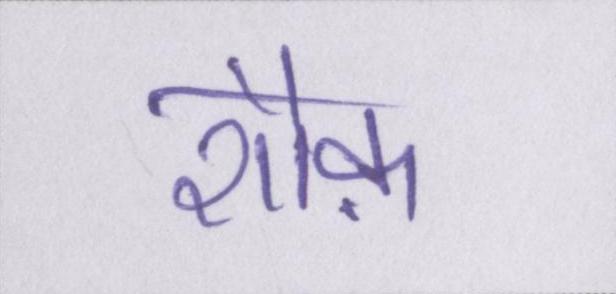 शौक़